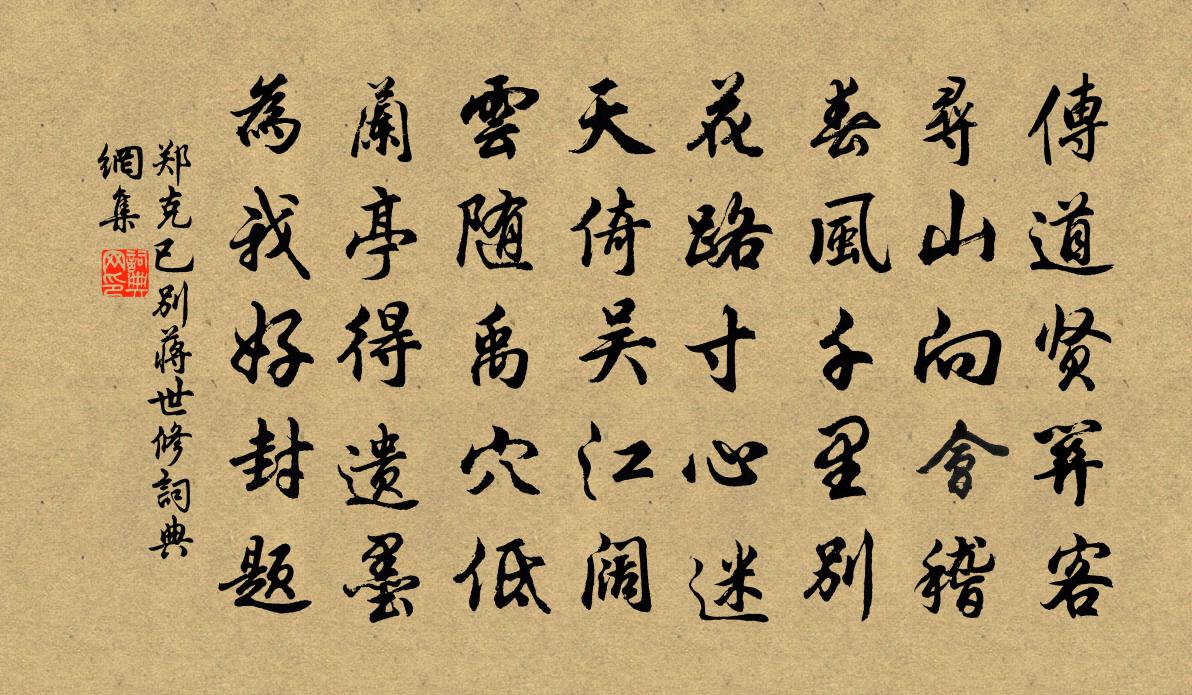 傳道贤关客
尋山向會稽
春風千里別
花路寸心迷
天倚吴江阔
雲随禹穴低
蘭亭得遗墨
為我好封题
郑克已別蒋世修詞典
網集
詞典
网印